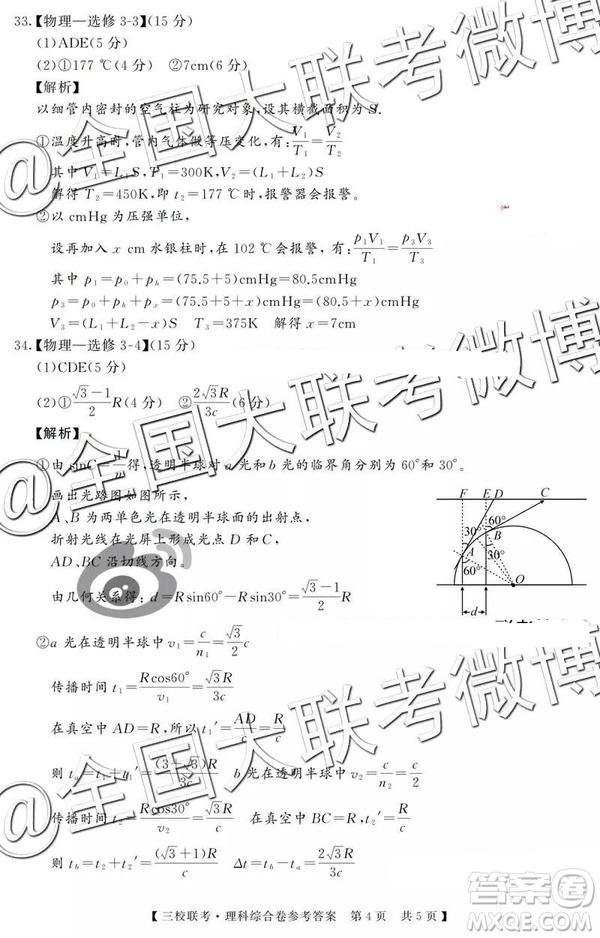 33.【物理—选修 3-3】(15 分)
(1)ADE(5 分)
(2)①177 ℃(4 分) ②7cm(6 分)
【解析】
以细管内密封的空气柱为研究对象,设其横截面积为 S.
①温度升高时,管内气体做等压变化,有:V₁/T₁=V₂/T₂
其中 V₁=L₁S,T₁=300K,V₂=(L₁+L₂)S
解得 T₂=450K,即 t₂=177 ℃时,报警器会报警.
②以 cmHg 为压强单位,
设再加入 x cm 水银柱时,在 102 ℃会报警,有:p₁V₁/T₁=p₃V₃/T₃
其中 p₁=p₀+pₕ=(75.5+5)cmHg=80.5cmHg
p₃=p₀+pₕ+pₓ=(75.5+5+x)cmHg=(80.5+x)cmHg
V₃=(L₁+L₂-x)S T₃=375K 解得 x=7cm
34.【物理—选修 3-4】(15 分)
(1)CDE(5 分)
(2)①(√3-1)/2 R(4 分) ②2√3R/3c(6 分)
【解析】
①由 sinC=1/n 得:透明半球对 a 光和 b 光的临界角分别为 60°和 30°。
画出光路图如图所示,
A、B 为两单色光在透明半球面的出射点,
折射光线在光屏上形成光点 D 和 C,
AD、BC 沿切线方向。
由几何关系得:d=Rsin60°-Rsin30°=(√3-1)/2 R
F E D C
30° 60° B
A 30°
60° O
d
②a 光在透明半球中 v₁=c/n₁=√3/2 c
传播时间 t₁=Rcos60°/v₁=√3R/3c
在真空中 AD=R,所以 t₁′=AD/c=R/c
则 tₐ=t₁+t₁′=(3+√3)R/3c b 光在透明半球中 v₂=c/n₂=c/2
传播时间 t₂=Rcos30°/v₂=√3R/c 在真空中 BC=R,t₂′=R/c
则 t_b=t₂+t₂′=(√3+1)R/c Δt=t_b-tₐ=2√3R/3c
【三校联考·理科综合卷参考答案 第 4 页 共 5 页】
@全国大联考微博
@全国大联考微博
@全国大联考微博
答案圈
MXQE.COM